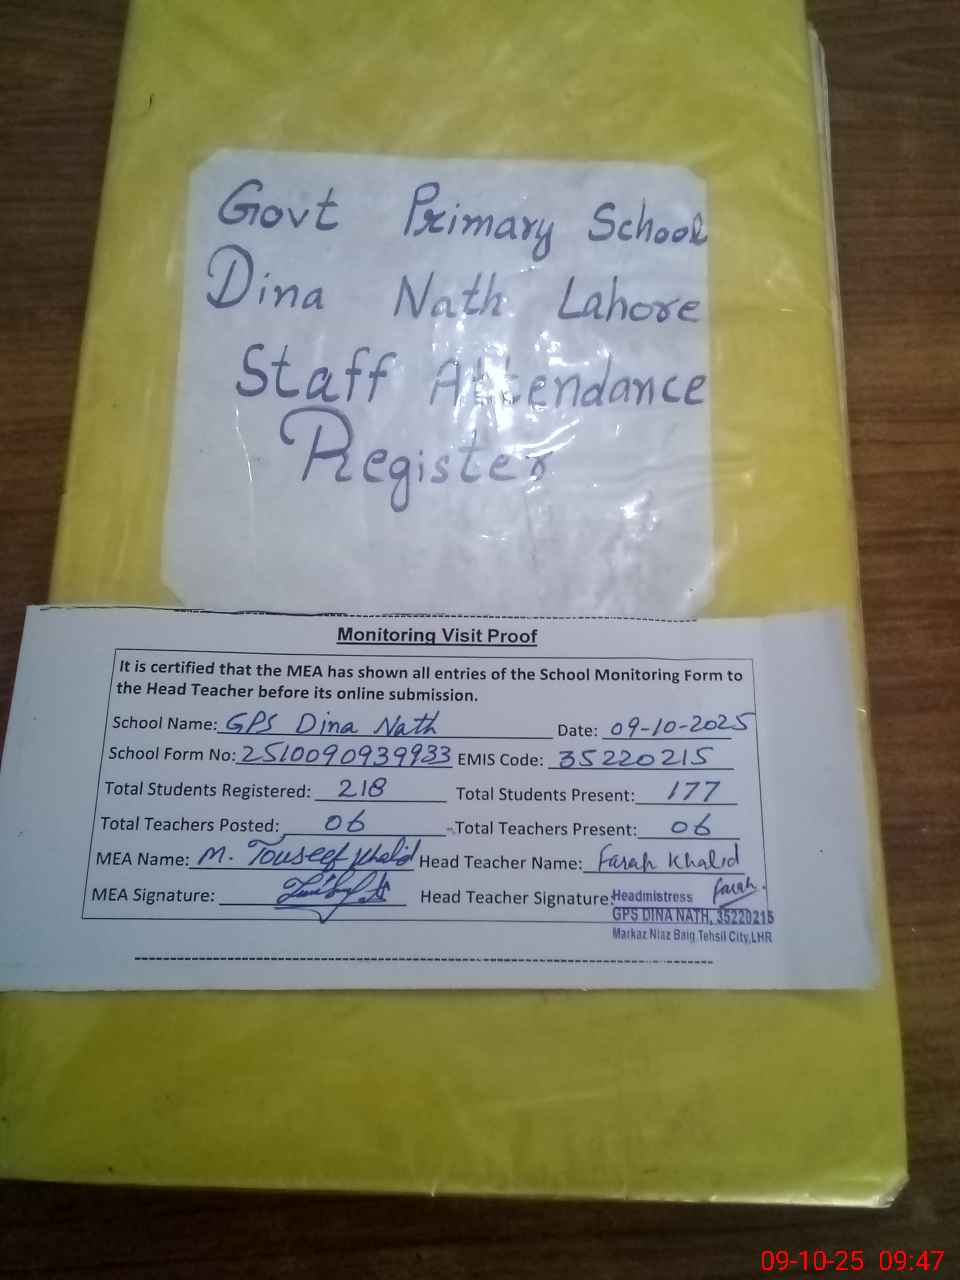 Govt Primary School
Dina Nath Lahore
Staff Attendance
Register
Monitoring Visit Proof
It is certified that the MEA has shown all entries of the School Monitoring Form to
the Head Teacher before its online submission.
School Name: GPS Dina Nath Date: 09-10-2025
School Form No: 2510090939933 EMIS Code: 35220215
Total Students Registered: 218 Total Students Present: 177
Total Teachers Posted: 06 Total Teachers Present: 06
MEA Name: M. Touseef Khalid Head Teacher Name: Farah Khalid
MEA Signature: Head Teacher Signature: Headmistress Farah
GPS DINA NATH, 35220215
Markaz Niaz Baig Tehsil City,LHR
09-10-25 09:47